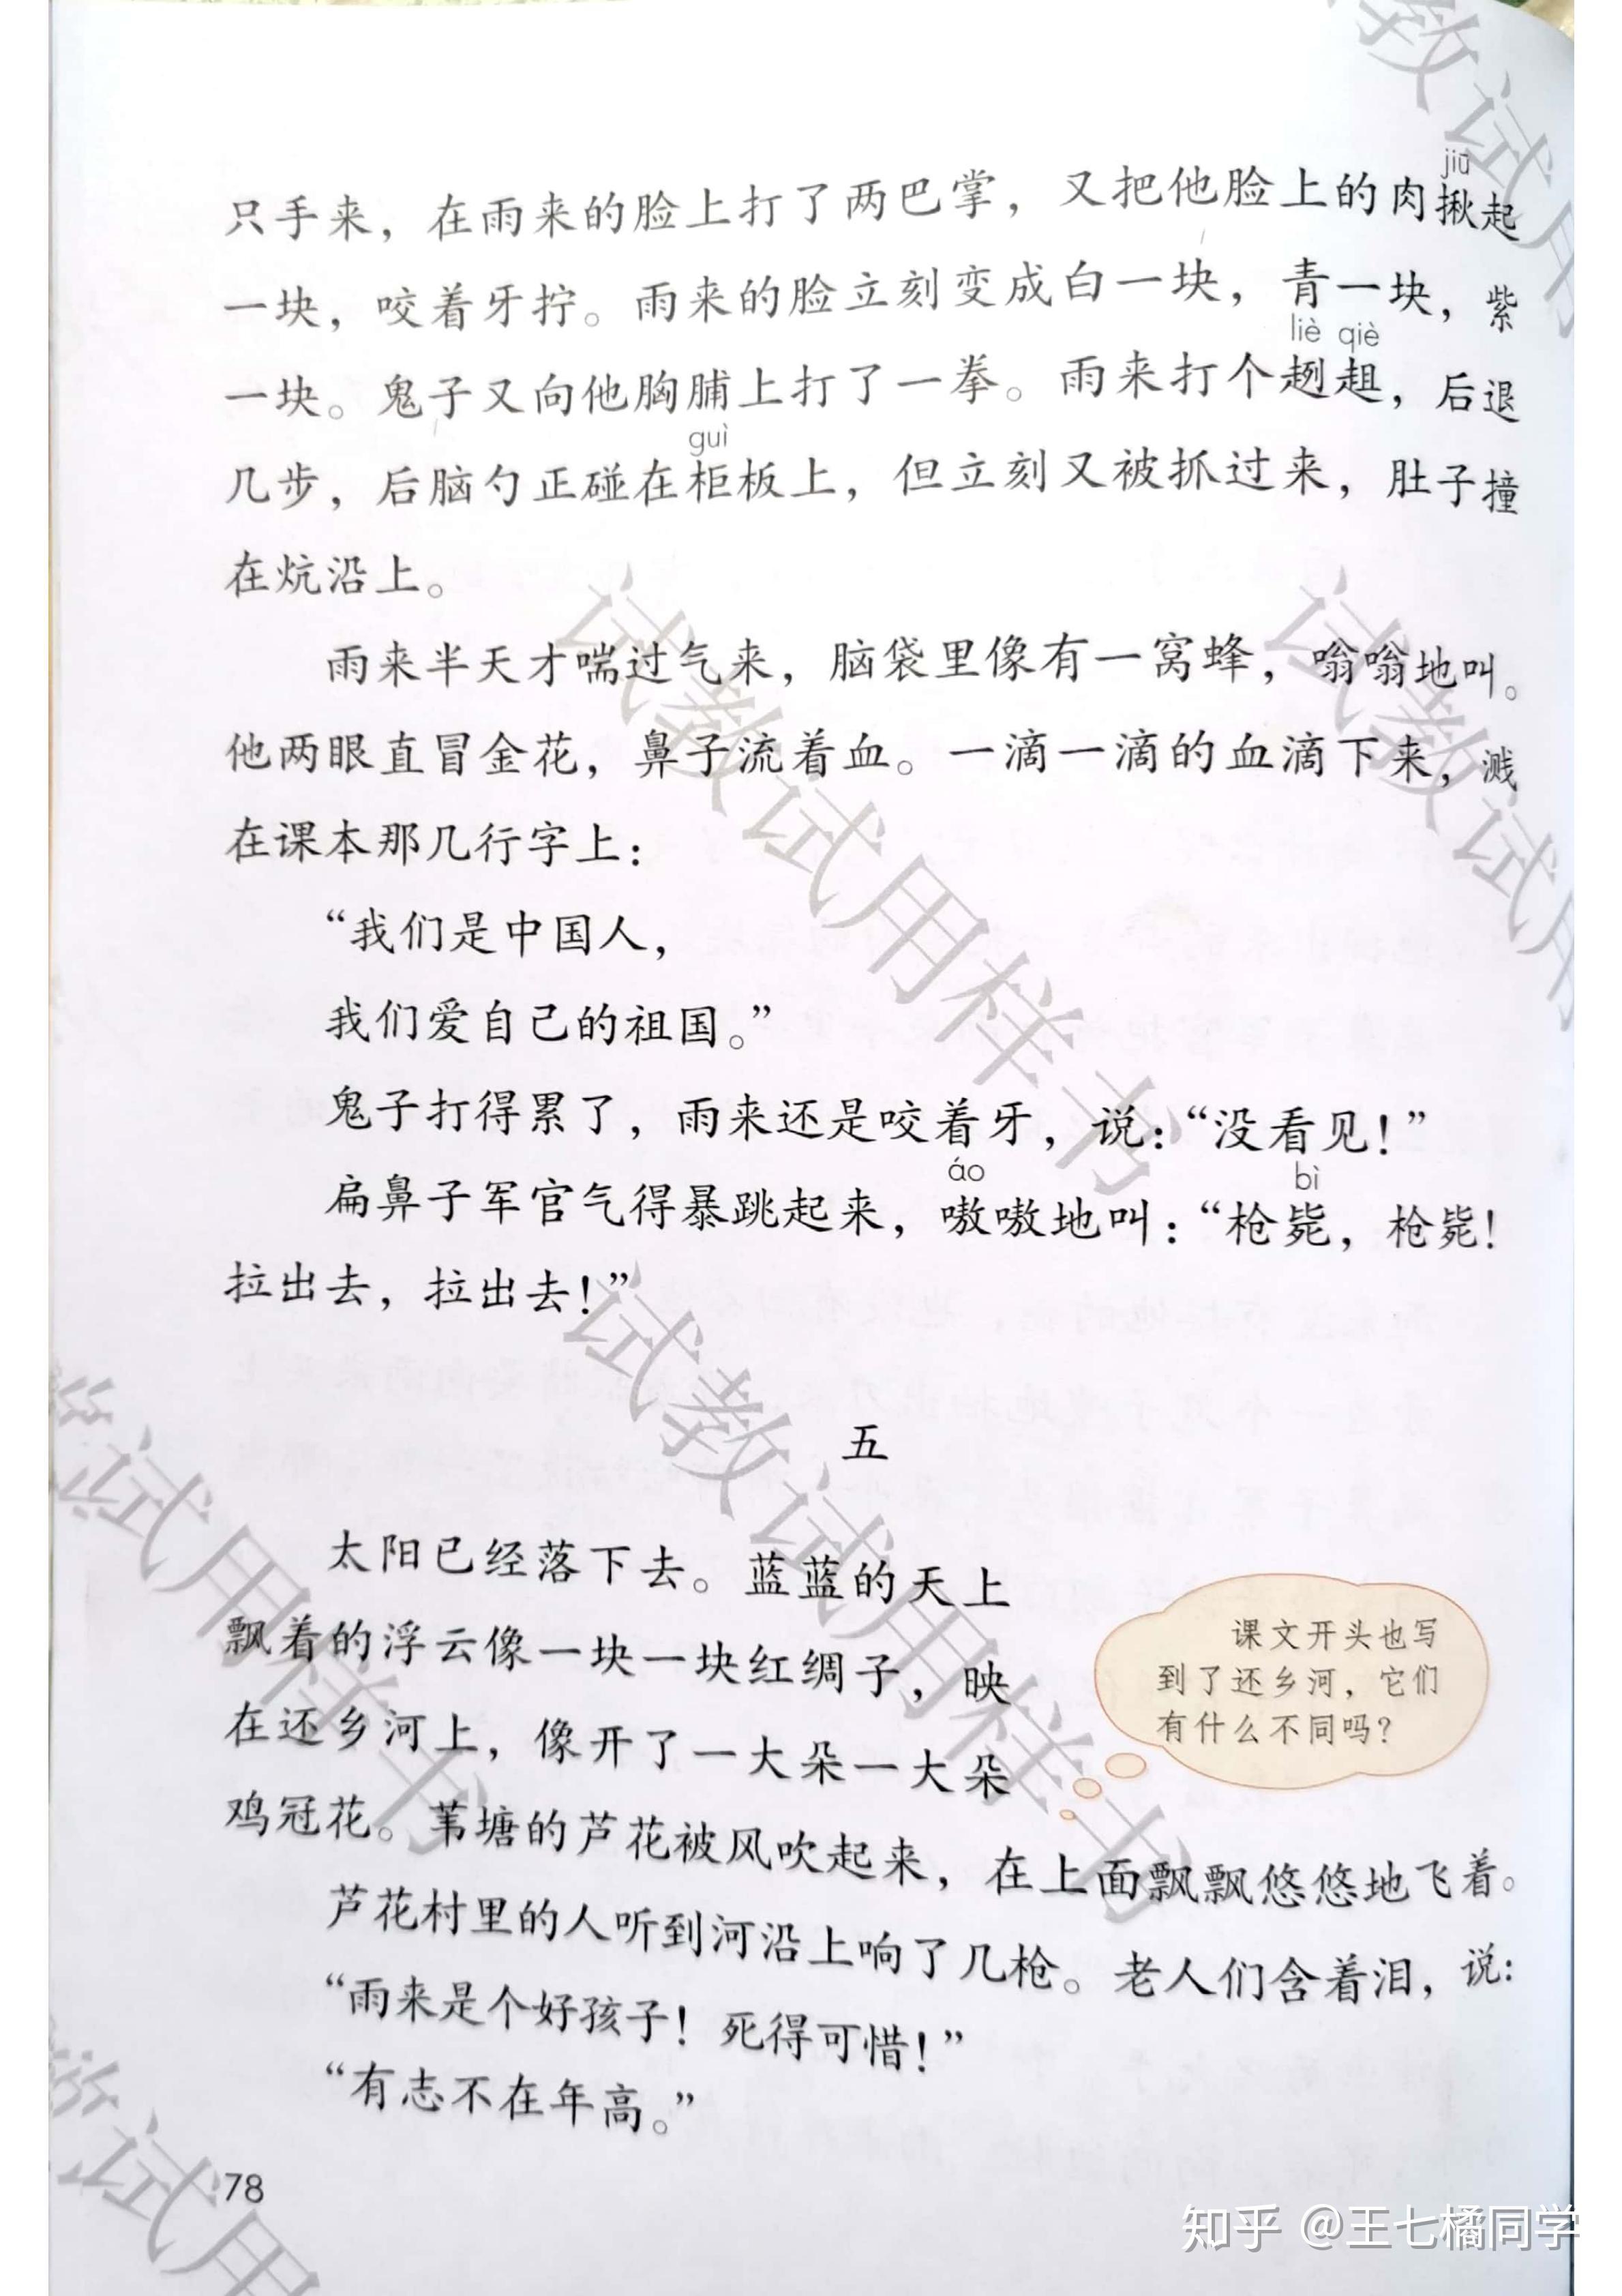 jiū
只手来，在雨来的脸上打了两巴掌，又把他脸上的肉揪起
一块，咬着牙拧。雨来的脸立刻变成白一块，青一块，紫
liè qiè
一块。鬼子又向他胸脯上打了一拳。雨来打个趔趄，后退
guì
几步，后脑勺正碰在柜板上，但立刻又被抓过来，肚子撞
在炕沿上。
雨来半天才喘过气来，脑袋里像有一窝蜂，嗡嗡地叫。
他两眼直冒金花，鼻子流着血。一滴一滴的血滴下来，溅
在课本那几行字上：
“我们是中国人，
我们爱自己的祖国。”
鬼子打得累了，雨来还是咬着牙，说：“没看见！”
áo bì
扁鼻子军官气得暴跳起来，嗷嗷地叫：“枪毙，枪毙！
拉出去，拉出去！”
五
太阳已经落下去。蓝蓝的天上
飘着的浮云像一块一块红绸子，映
在还乡河上，像开了一大朵一大朵
鸡冠花。苇塘的芦花被风吹起来，在上面飘飘悠悠地飞着。
课文开头也写
到了还乡河，它们
有什么不同吗？
芦花村里的人听到河沿上响了几枪。老人们含着泪，说：
“雨来是个好孩子！死得可惜！”
“有志不在年高。”
78
试教试用样书
试教试用样书
试教试用样书
知乎 @王七橘同学